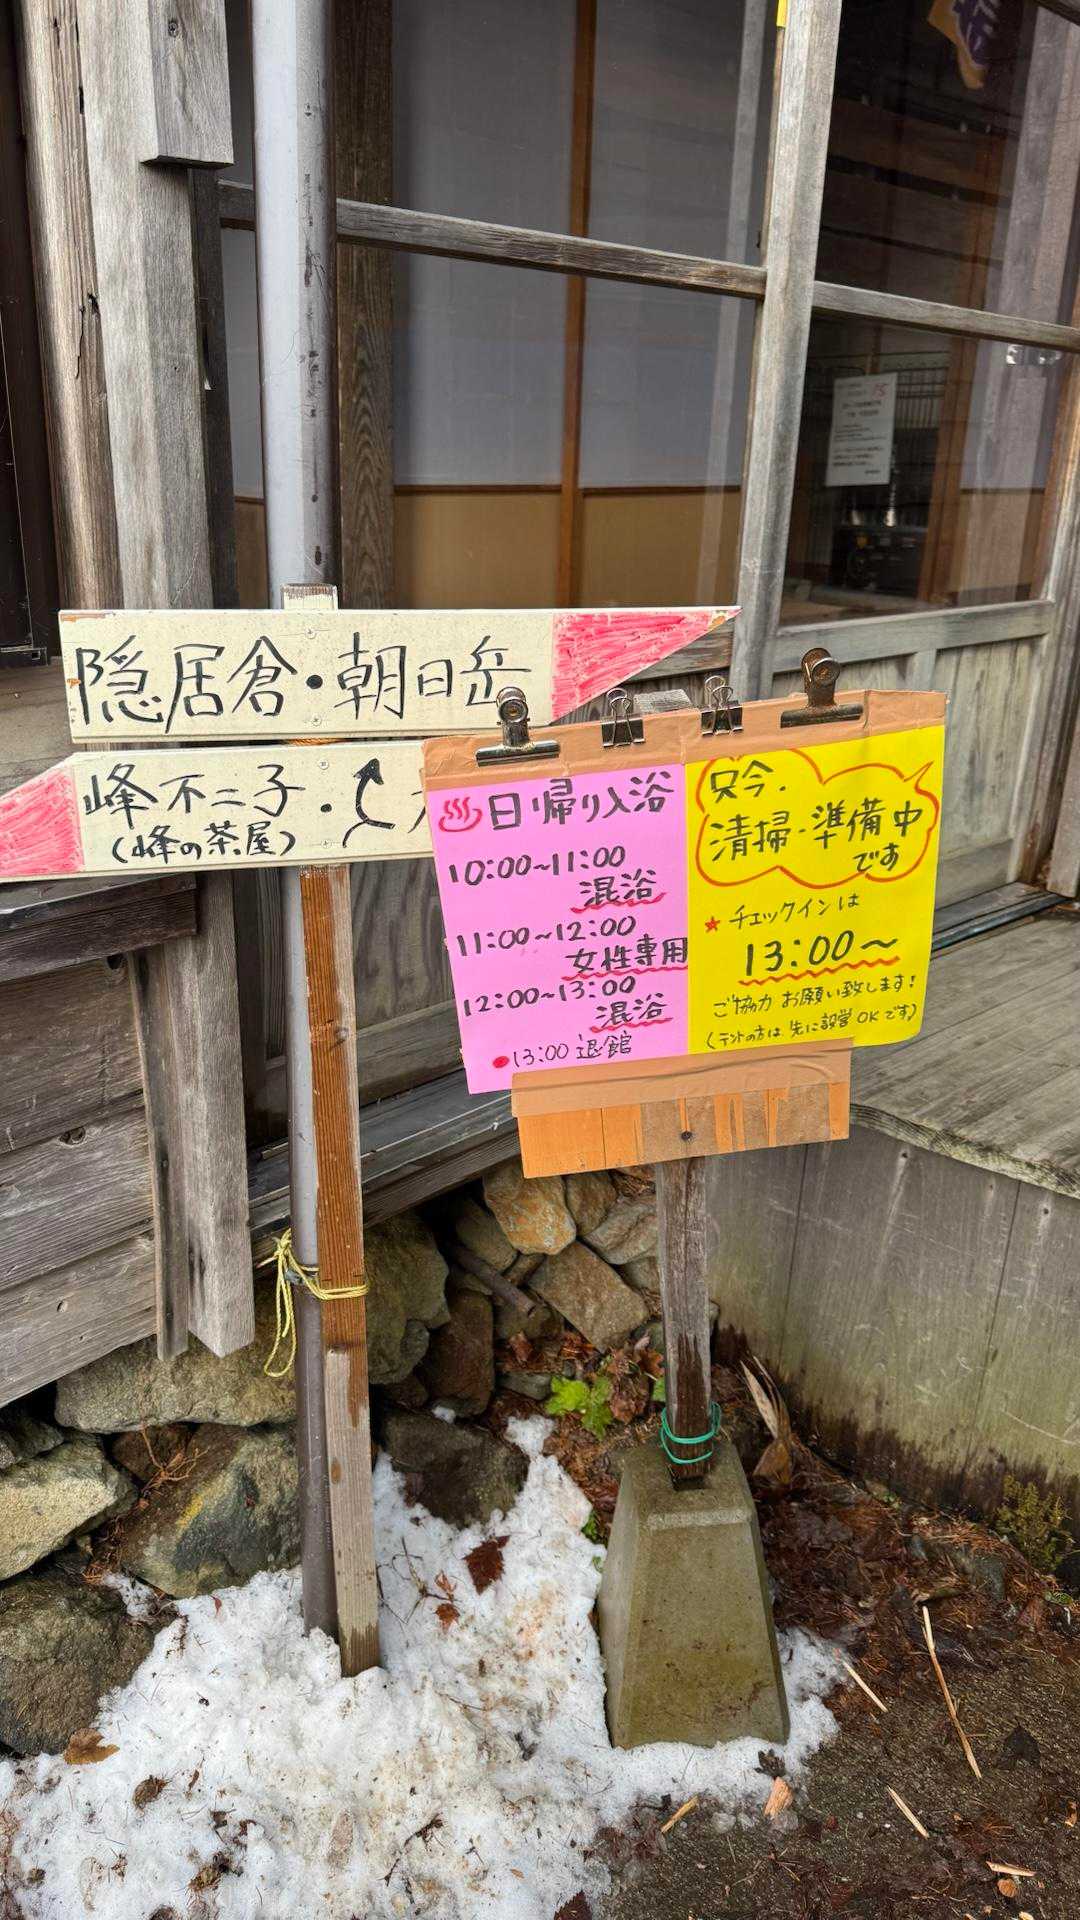 隠居倉・朝日岳
峰不二子・
(峰の茶屋)
♨日帰り入浴
10:00~11:00
混浴
11:00~12:00
女性専用
12:00~13:00
混浴
●13:00 退館
只今.
清掃・準備中
です
★チェックインは
13:00~
ご協力お願い致します!
(テントの方は 先に設営OKです)